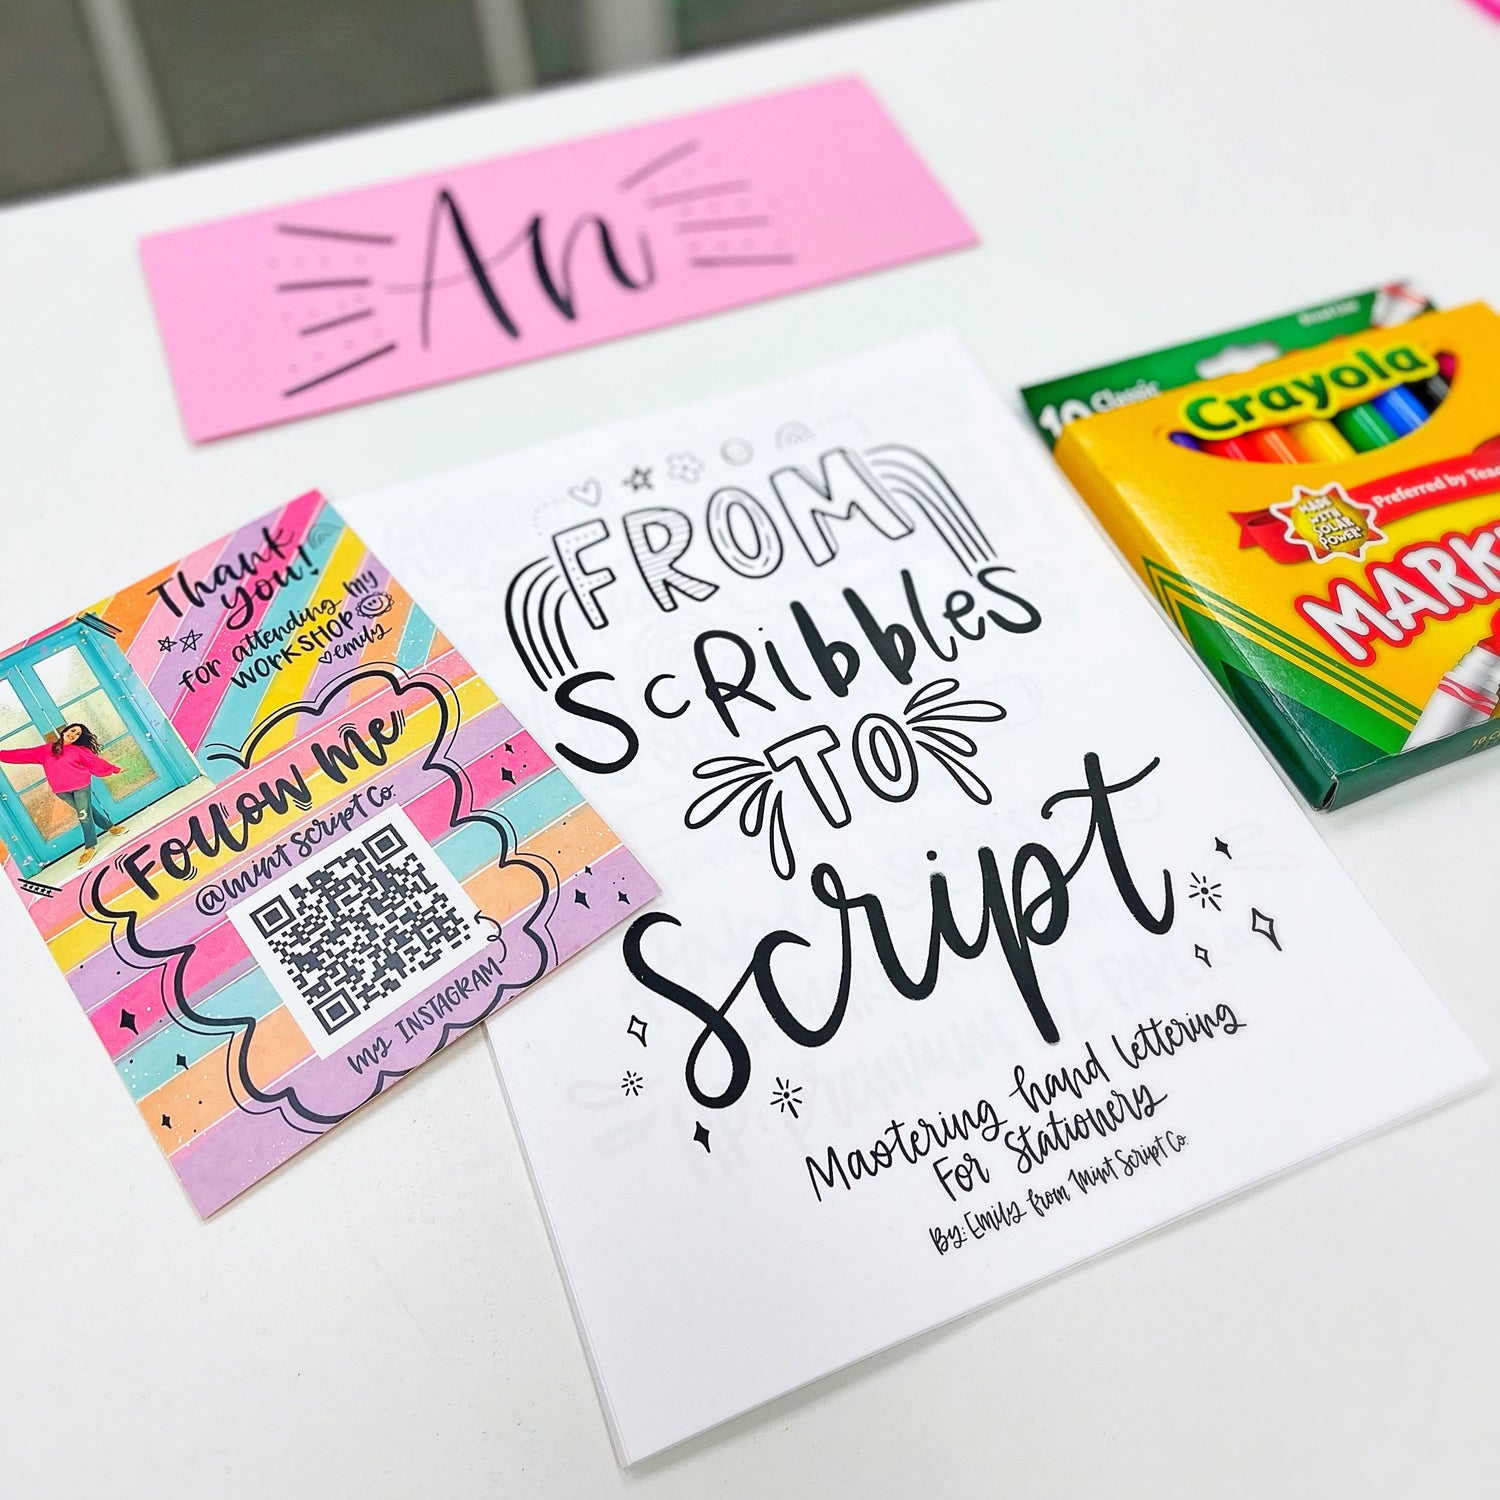 An
FROM
ScRibbles
TO
Script
Mastering hand lettering
For Stationery
By: Emily from Mint Script Co.
Thank
you!
for attending my
WORKSHOP
emily
Follow Me
@mint script Co.
MY INSTAGRAM
10 Classic
Crayola
Preferred by
MADE
WITH
SOLAR
POWER